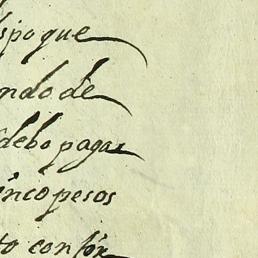 spo que
ndo de
debo pagar
inco pesos
to confor